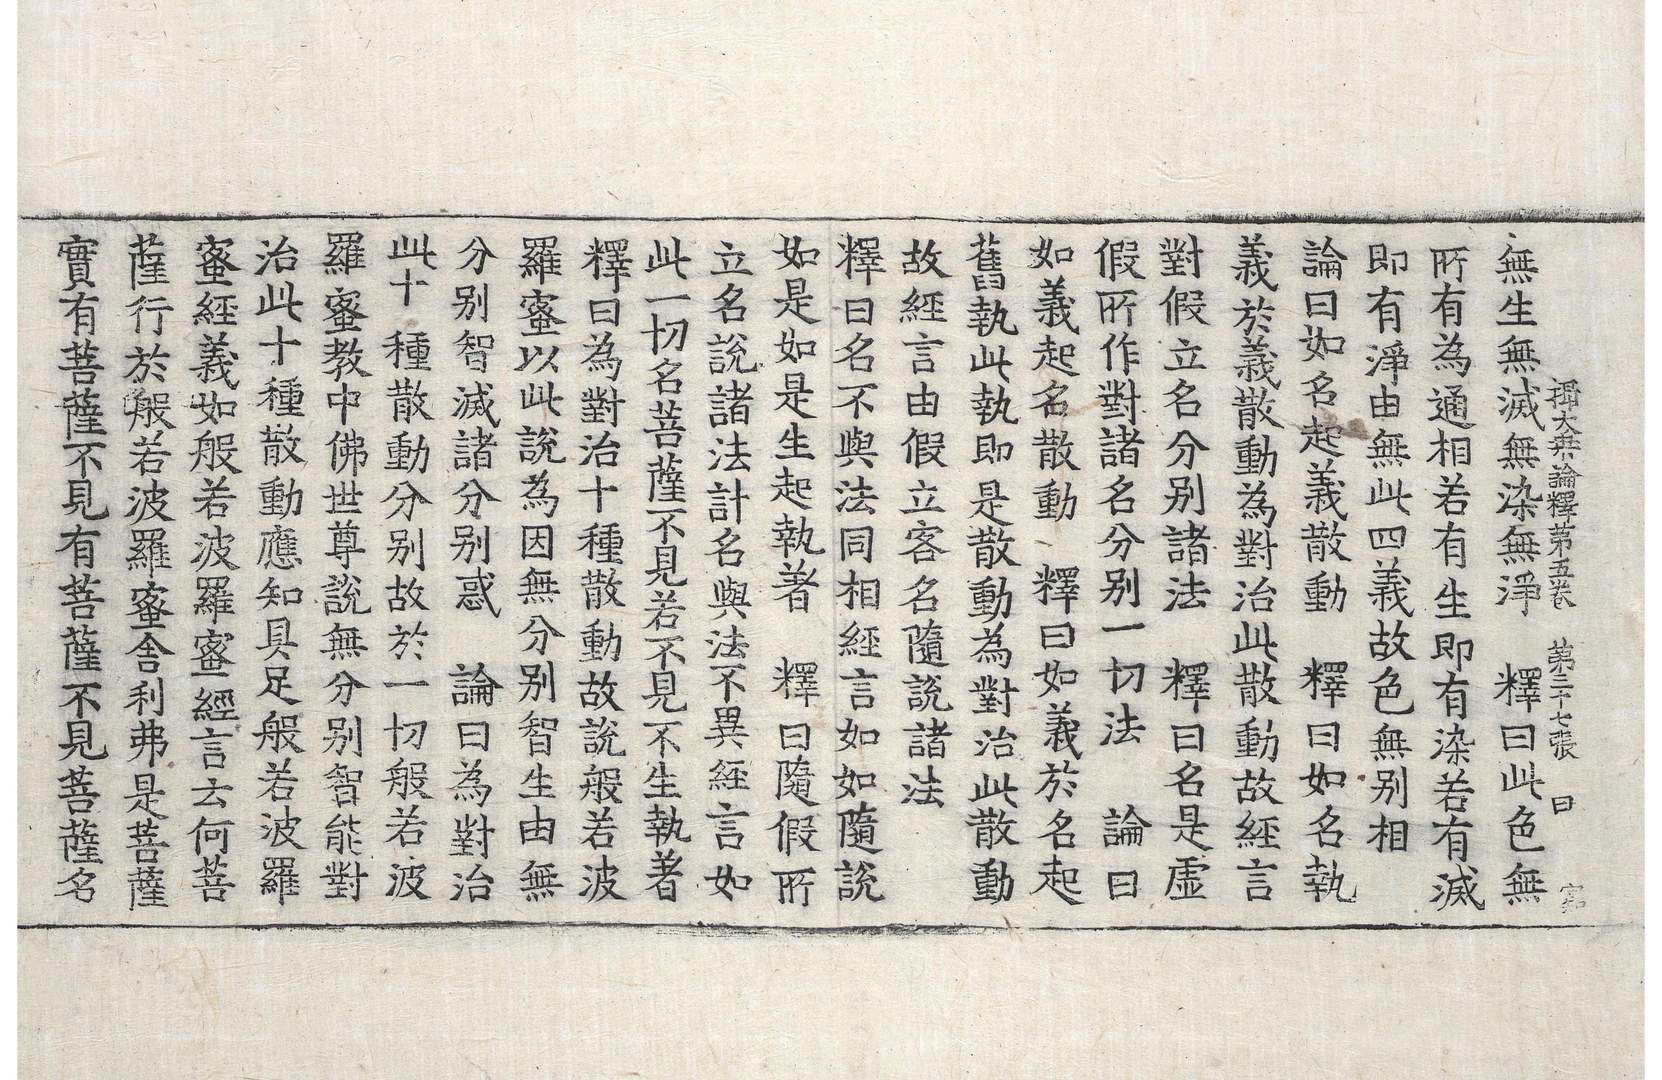 攝大乗論釋第五卷　第二十七張　曰
無生無滅無染無淨　釋曰此色無
所有為通相若有生即有染若有滅
即有淨由無此四義故色無别相
論曰如名起義散動　釋曰如名執
義於義散動為對治此散動故經言
對假立名分别諸法　釋曰名是虚
假所作對諸名分别一切法　論曰
如義起名散動　釋曰如義於名起
舊執此執即是散動為對治此散動
故經言由假立客名隨說諸法
釋曰名不與法同相經言如如隨說
如是如是生起執著　釋曰隨假所
立名說諸法計名與法不異經言如
此一切名菩薩不見若不見不生執著
釋曰為對治十種散動故說般若波
羅蜜以此說為因無分别智生由無
分别智滅諸分别惑　論曰為對治
此十種散動分别故於一切般若波
羅蜜教中佛世尊說無分别智能對
治此十種散動應知具足般若波羅
蜜經義如般若波羅蜜經言云何菩
薩行於般若波羅蜜舍利弗是菩薩
實有菩薩不見有菩薩不見菩薩名